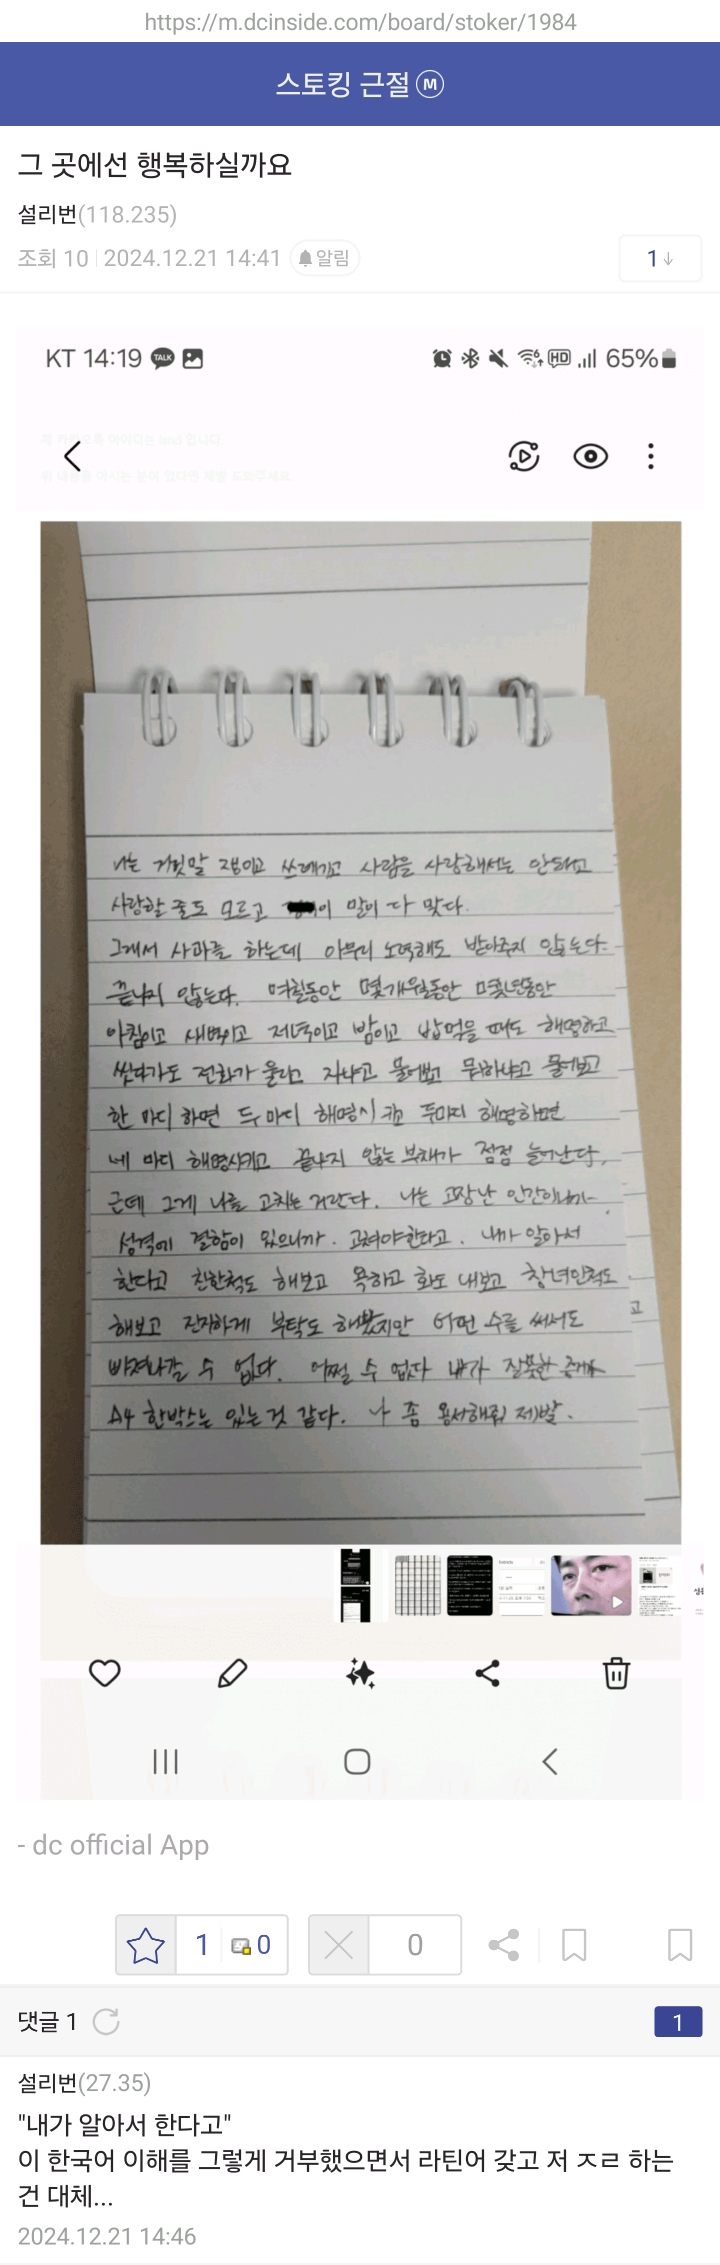 https://m.dcinside.com/board/stoker/1984
스토킹 근절 M
그 곳에선 행복하실까요
설리번(118.235)
조회 10 | 2024.12.21 14:41 알림
1↓
KT 14:19 TALK HD 65%
나는 거짓말 쟁이고 쓰레기고 사람을 사랑해서는 안되고
사랑할 줄도 모르고 이 말이 다 맞다.
그래서 사과를 하는데 아무리 노력해도 받아주지 않는다.
끝나지 않는다. 며칠동안 몇개월동안 몇년동안
아침이고 새벽이고 저녁이고 밤이고 밥먹을 때도 해명하고
씻다가도 전화가 울리고 자냐고 물어보고 뭐하냐고 물어보고
한 마디 하면 두 마디 해명시키고 두마디 해명하면
네 마디 해명시키고 끝나지 않는 부채가 점점 늘어난다.
근데 그게 나를 고치는거란다. 나는 고장난 인간이니까
성격에 결함이 있으니까. 고쳐야한다고. 내가 알아서
한다고 친한척도 해보고 욕하고 화도 내보고 창녀인척도
해보고 진지하게 부탁도 해봤지만 어떤 수를 써서도
빠져나갈 수 없다. 어쩔 수 없다 내가 잘못한 증거가
A4 한박스는 있는 것 같다. 나 좀 용서해줘 제발.
- dc official App
1 0 0
댓글 1 1
설리번(27.35)
"내가 알아서 한다고"
이 한국어 이해를 그렇게 거부했으면서 라틴어 갖고 저 ㅈㄹ 하는
건 대체...
2024.12.21 14:46